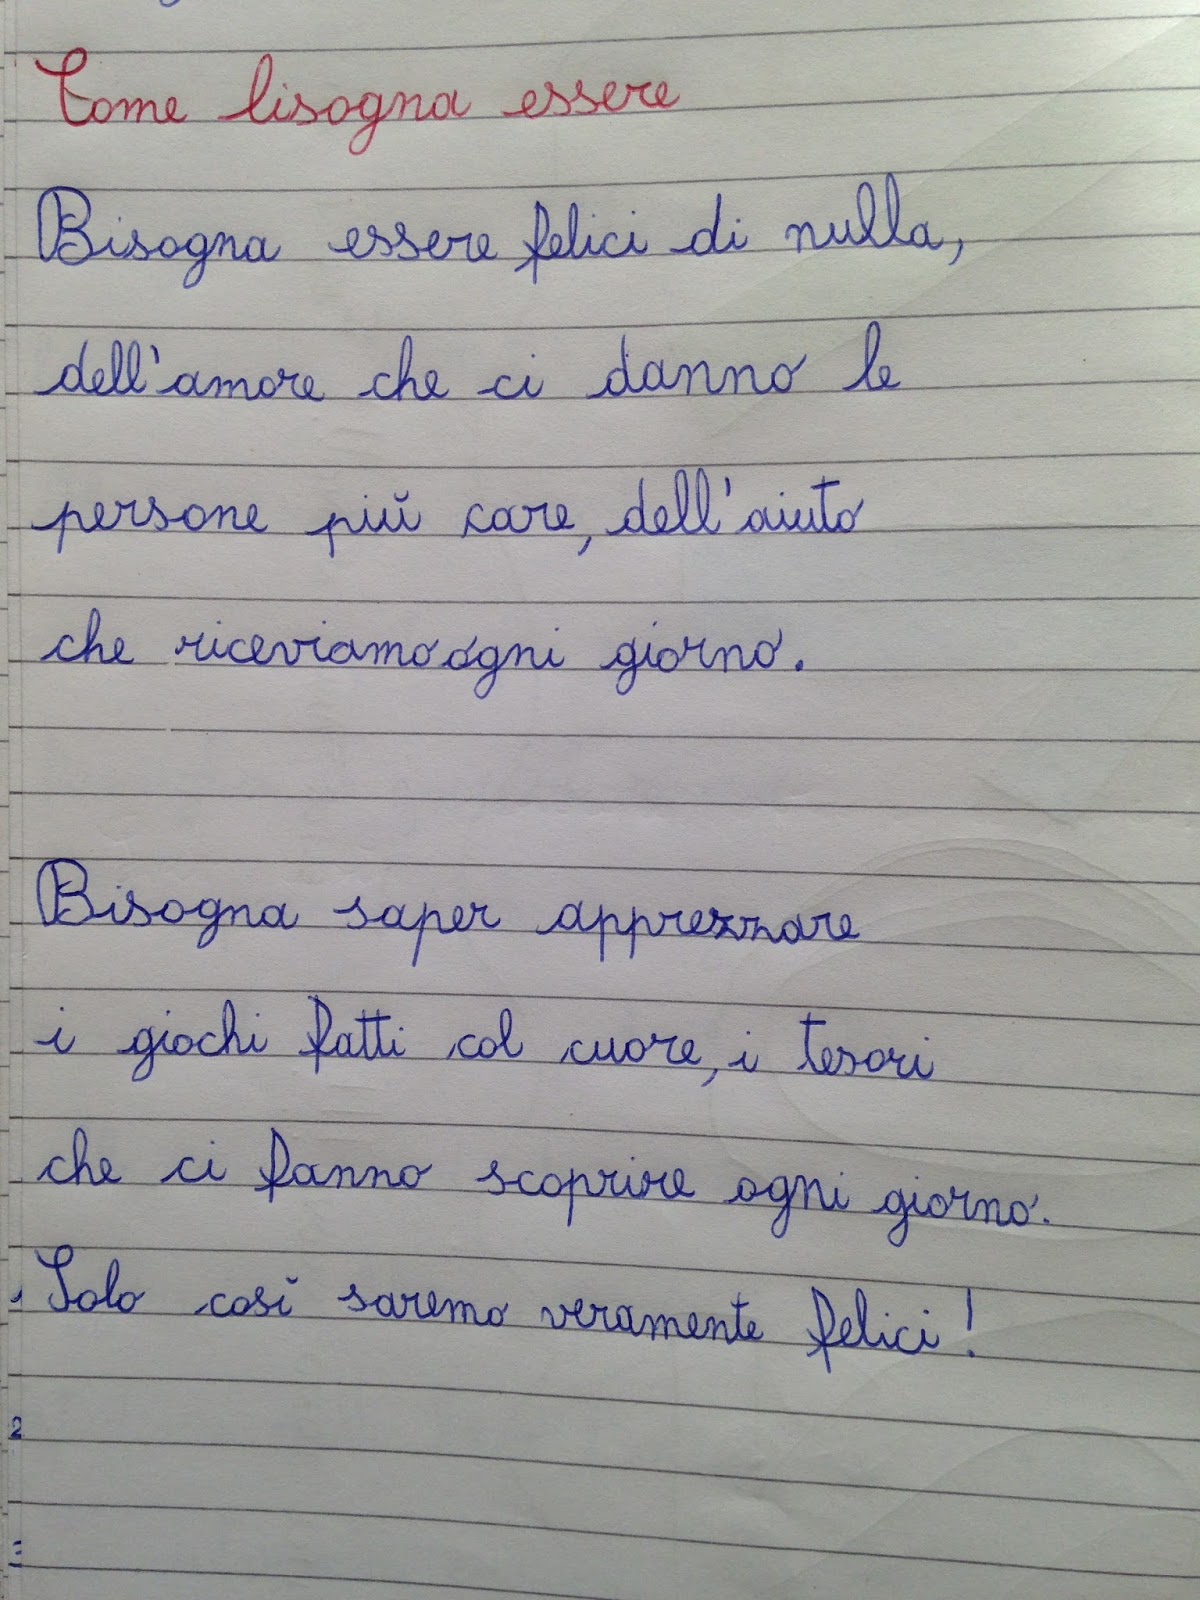 Come bisogna essere
Bisogna essere felici di nulla,
dell'amore che ci danno le
persone più care, dell'aiuto
che riceviamo ogni giorno.
Bisogna saper apprezzare
i giochi fatti col cuore, i tesori
che ci fanno scoprire ogni giorno.
Solo così saremo veramente felici!
2
3